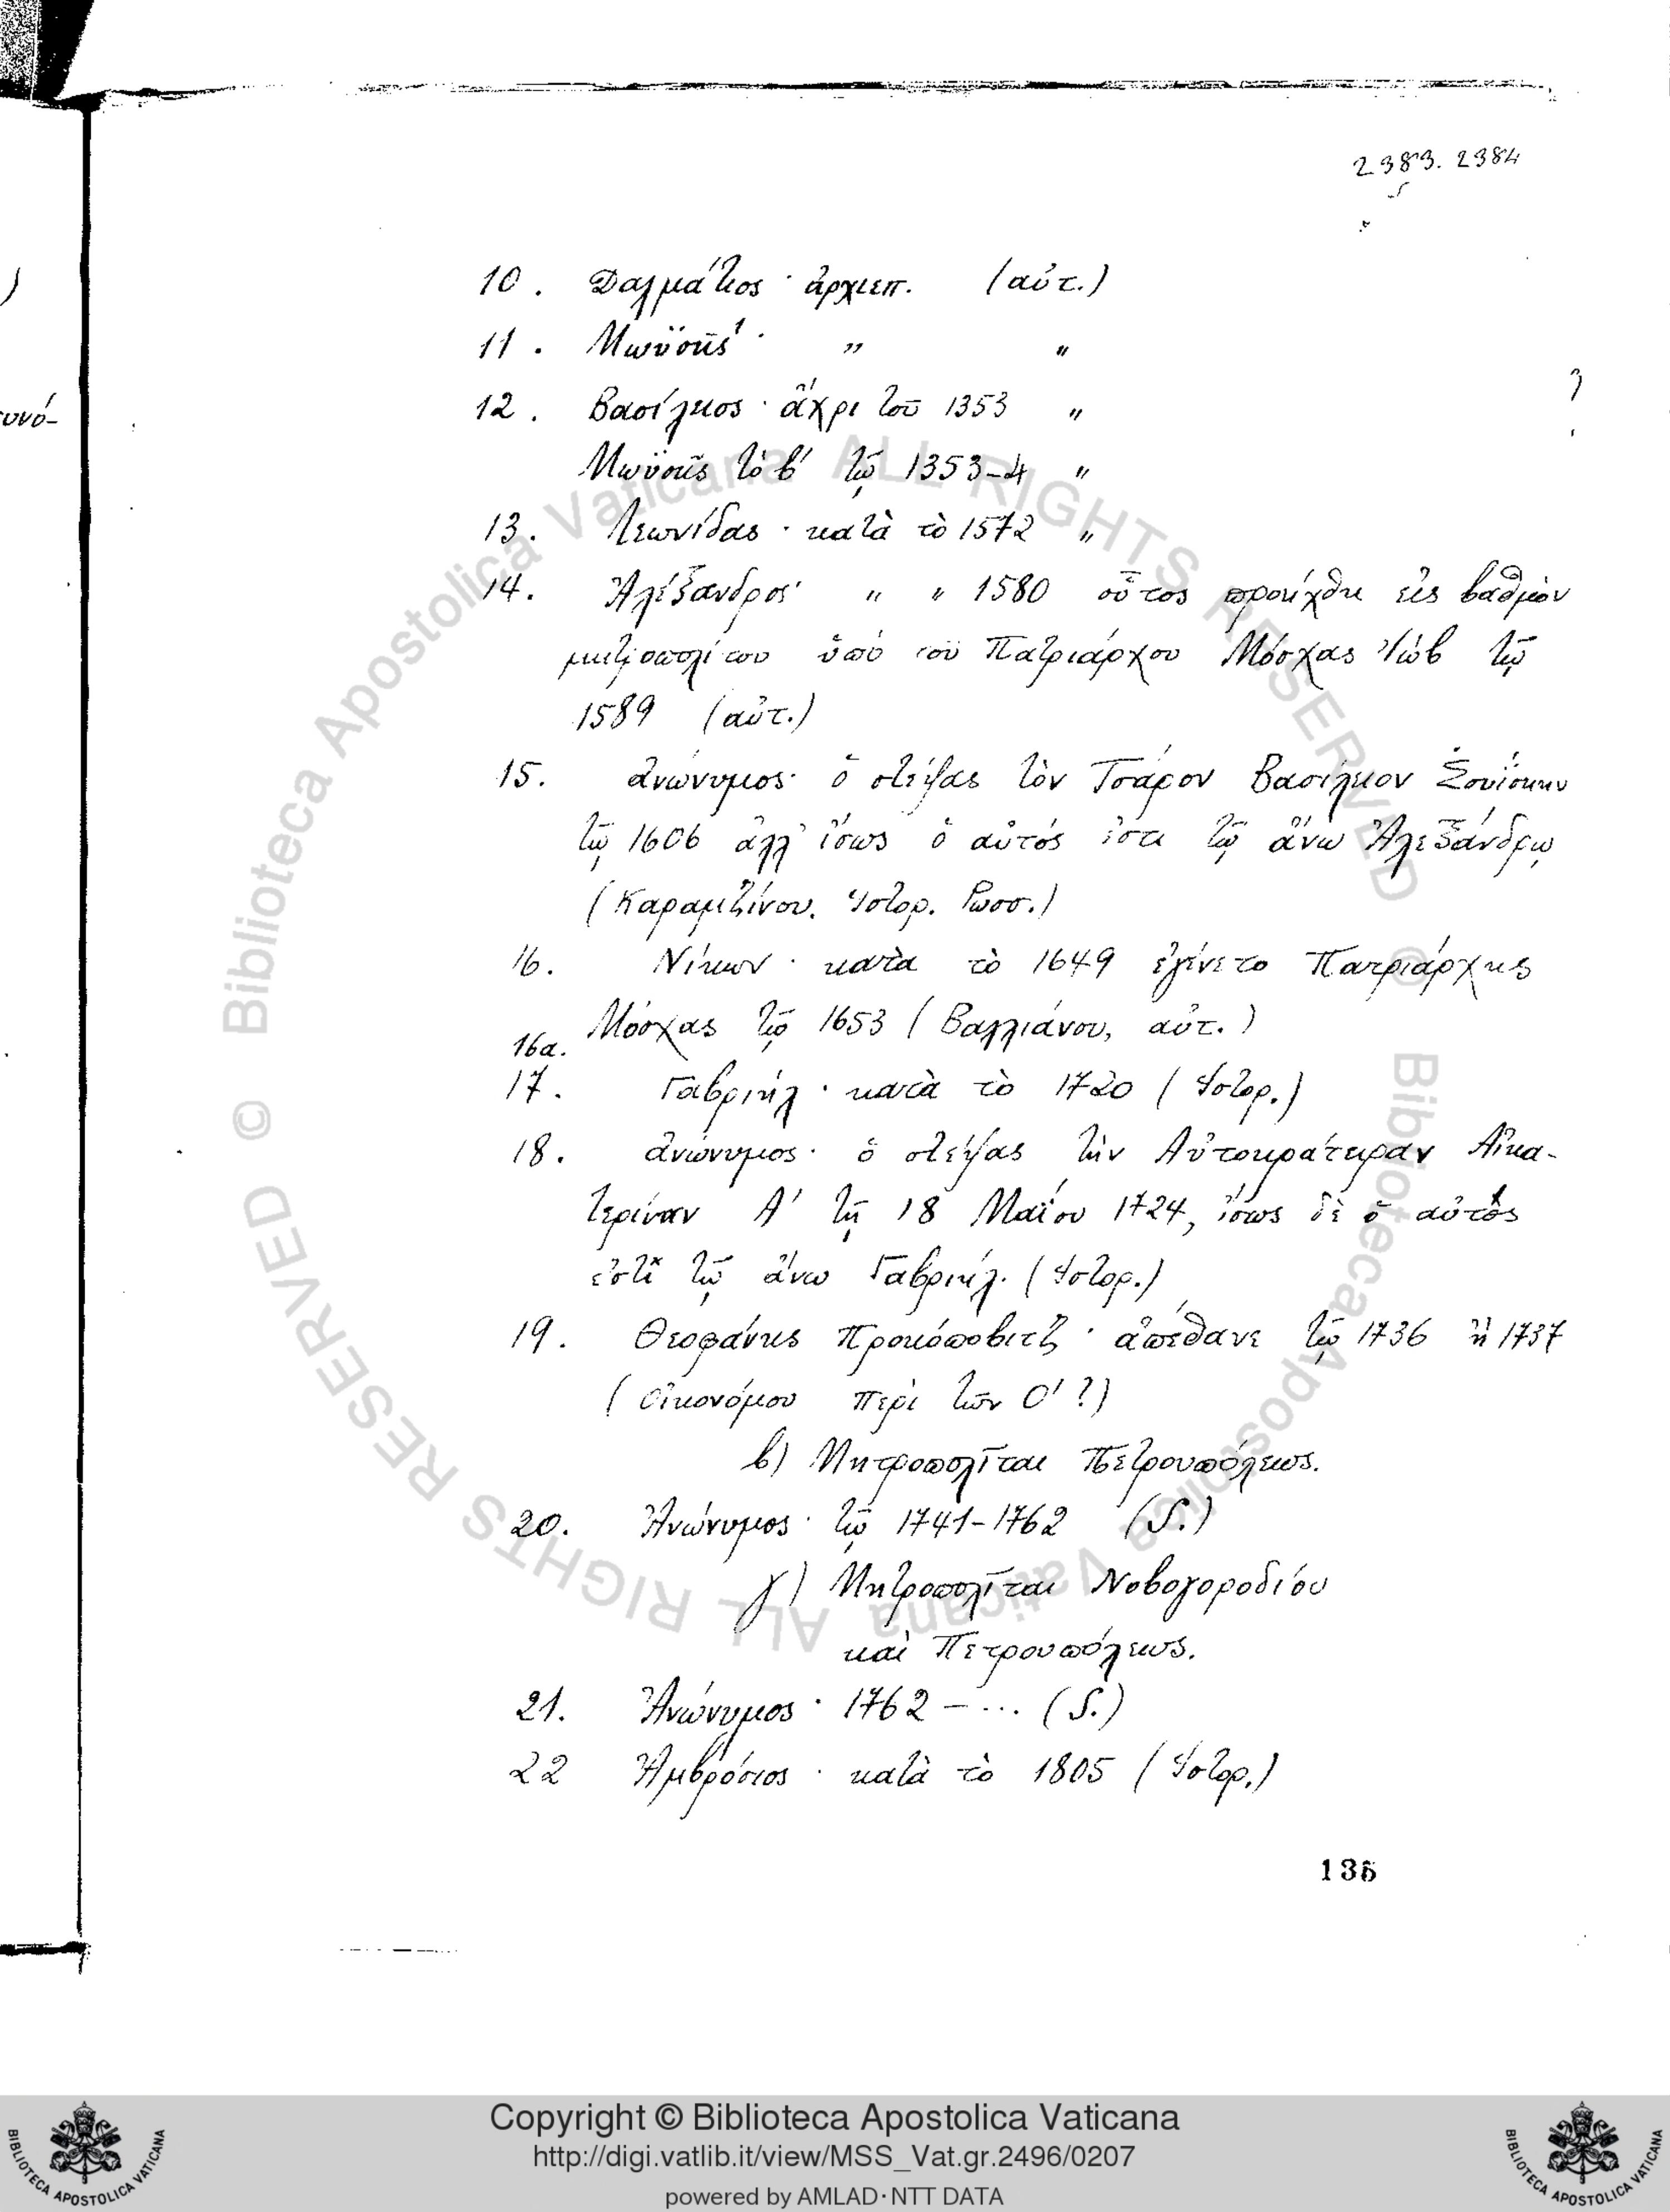 2383. 2384
10. Δαλμάτιος · ἀρχιεπ. (αὐτ.)
11. Μωϋσῆς · „ „
12. Βασίλειος · ἄχρι τοῦ 1353 „
υνό-
Μωϋσῆς τὸ β' τῷ 1353-4 „
13. Λεωνίδας · κατὰ τὸ 1572 „
14. Ἀλέξανδρος · „ „ 1580 οὗτος προήχθη εἰς βαθμὸν
μητροπολίτου ὑπὸ τοῦ Πατριάρχου Μόσχας Ἰὼβ τῷ
1589 (αὐτ.)
15. ἀνώνυμος · ὁ στέψας τὸν Τσάρον Βασίλειον Σουΐσκην
τῷ 1606 ἀλλ' ἴσως ὁ αὐτός ἐστι τῷ ἄνω Ἀλεξάνδρῳ
(Καραμζίνου. Ἱστορ. Ρωσσ.)
16. Νίκων · κατὰ τὸ 1649 ἐγένετο Πατριάρχης
Μόσχας τῷ 1653 (Βαλλιάνου, αὐτ.)
16α.
17. Γαβριήλ · κατὰ τὸ 1720 (Ἱστορ.)
18. ἀνώνυμος · ὁ στέψας τὴν Αὐτοκράτειραν Αἰκα-
τερίναν Α' τῇ 18 Μαΐου 1724, ἴσως δὲ ὁ αὐτός
ἐστι τῷ ἄνω Γαβριήλ. (Ἱστορ.)
19. Θεοφάνης Προκόποβιτζ · ἀπέθανε τῷ 1736 ἢ 1737
(Οἰκονόμου περὶ τῶν Ο' ?)
β) Μητροπολῖται Πετρουπόλεως.
20. Ἀνώνυμος · τῷ 1741-1762 (S.)
γ) Μητροπολῖται Νοβογοροδίου
καὶ Πετρουπόλεως.
21. Ἀνώνυμος · 1762 - ... (S.)
22 Ἀμβρόσιος · κατὰ τὸ 1805 (Ἱστορ.)
136
© Biblioteca Apostolica Vaticana ALL RIGHTS RESERVED © Biblioteca Apostolica Vaticana ALL RIGHTS RESERVED
Copyright © Biblioteca Apostolica Vaticana
http://digi.vatlib.it/view/MSS_Vat.gr.2496/0207
powered by AMLAD·NTT DATA
BIBLIOTECA APOSTOLICA VATICANA
BIBLIOTECA APOSTOLICA VATICANA